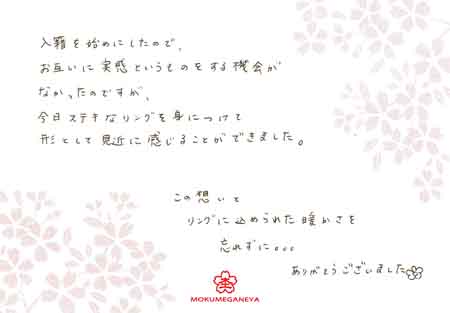 入籍を始めにしたので、
お互いに実感というものをする機会が
なかったのですが、
今日ステキなリングを身につけて
形として見近に感じることができました。
この想いと
リングに込められた暖かさを
忘れずに。。。
ありがとうございました
MOKUMEGANEYA